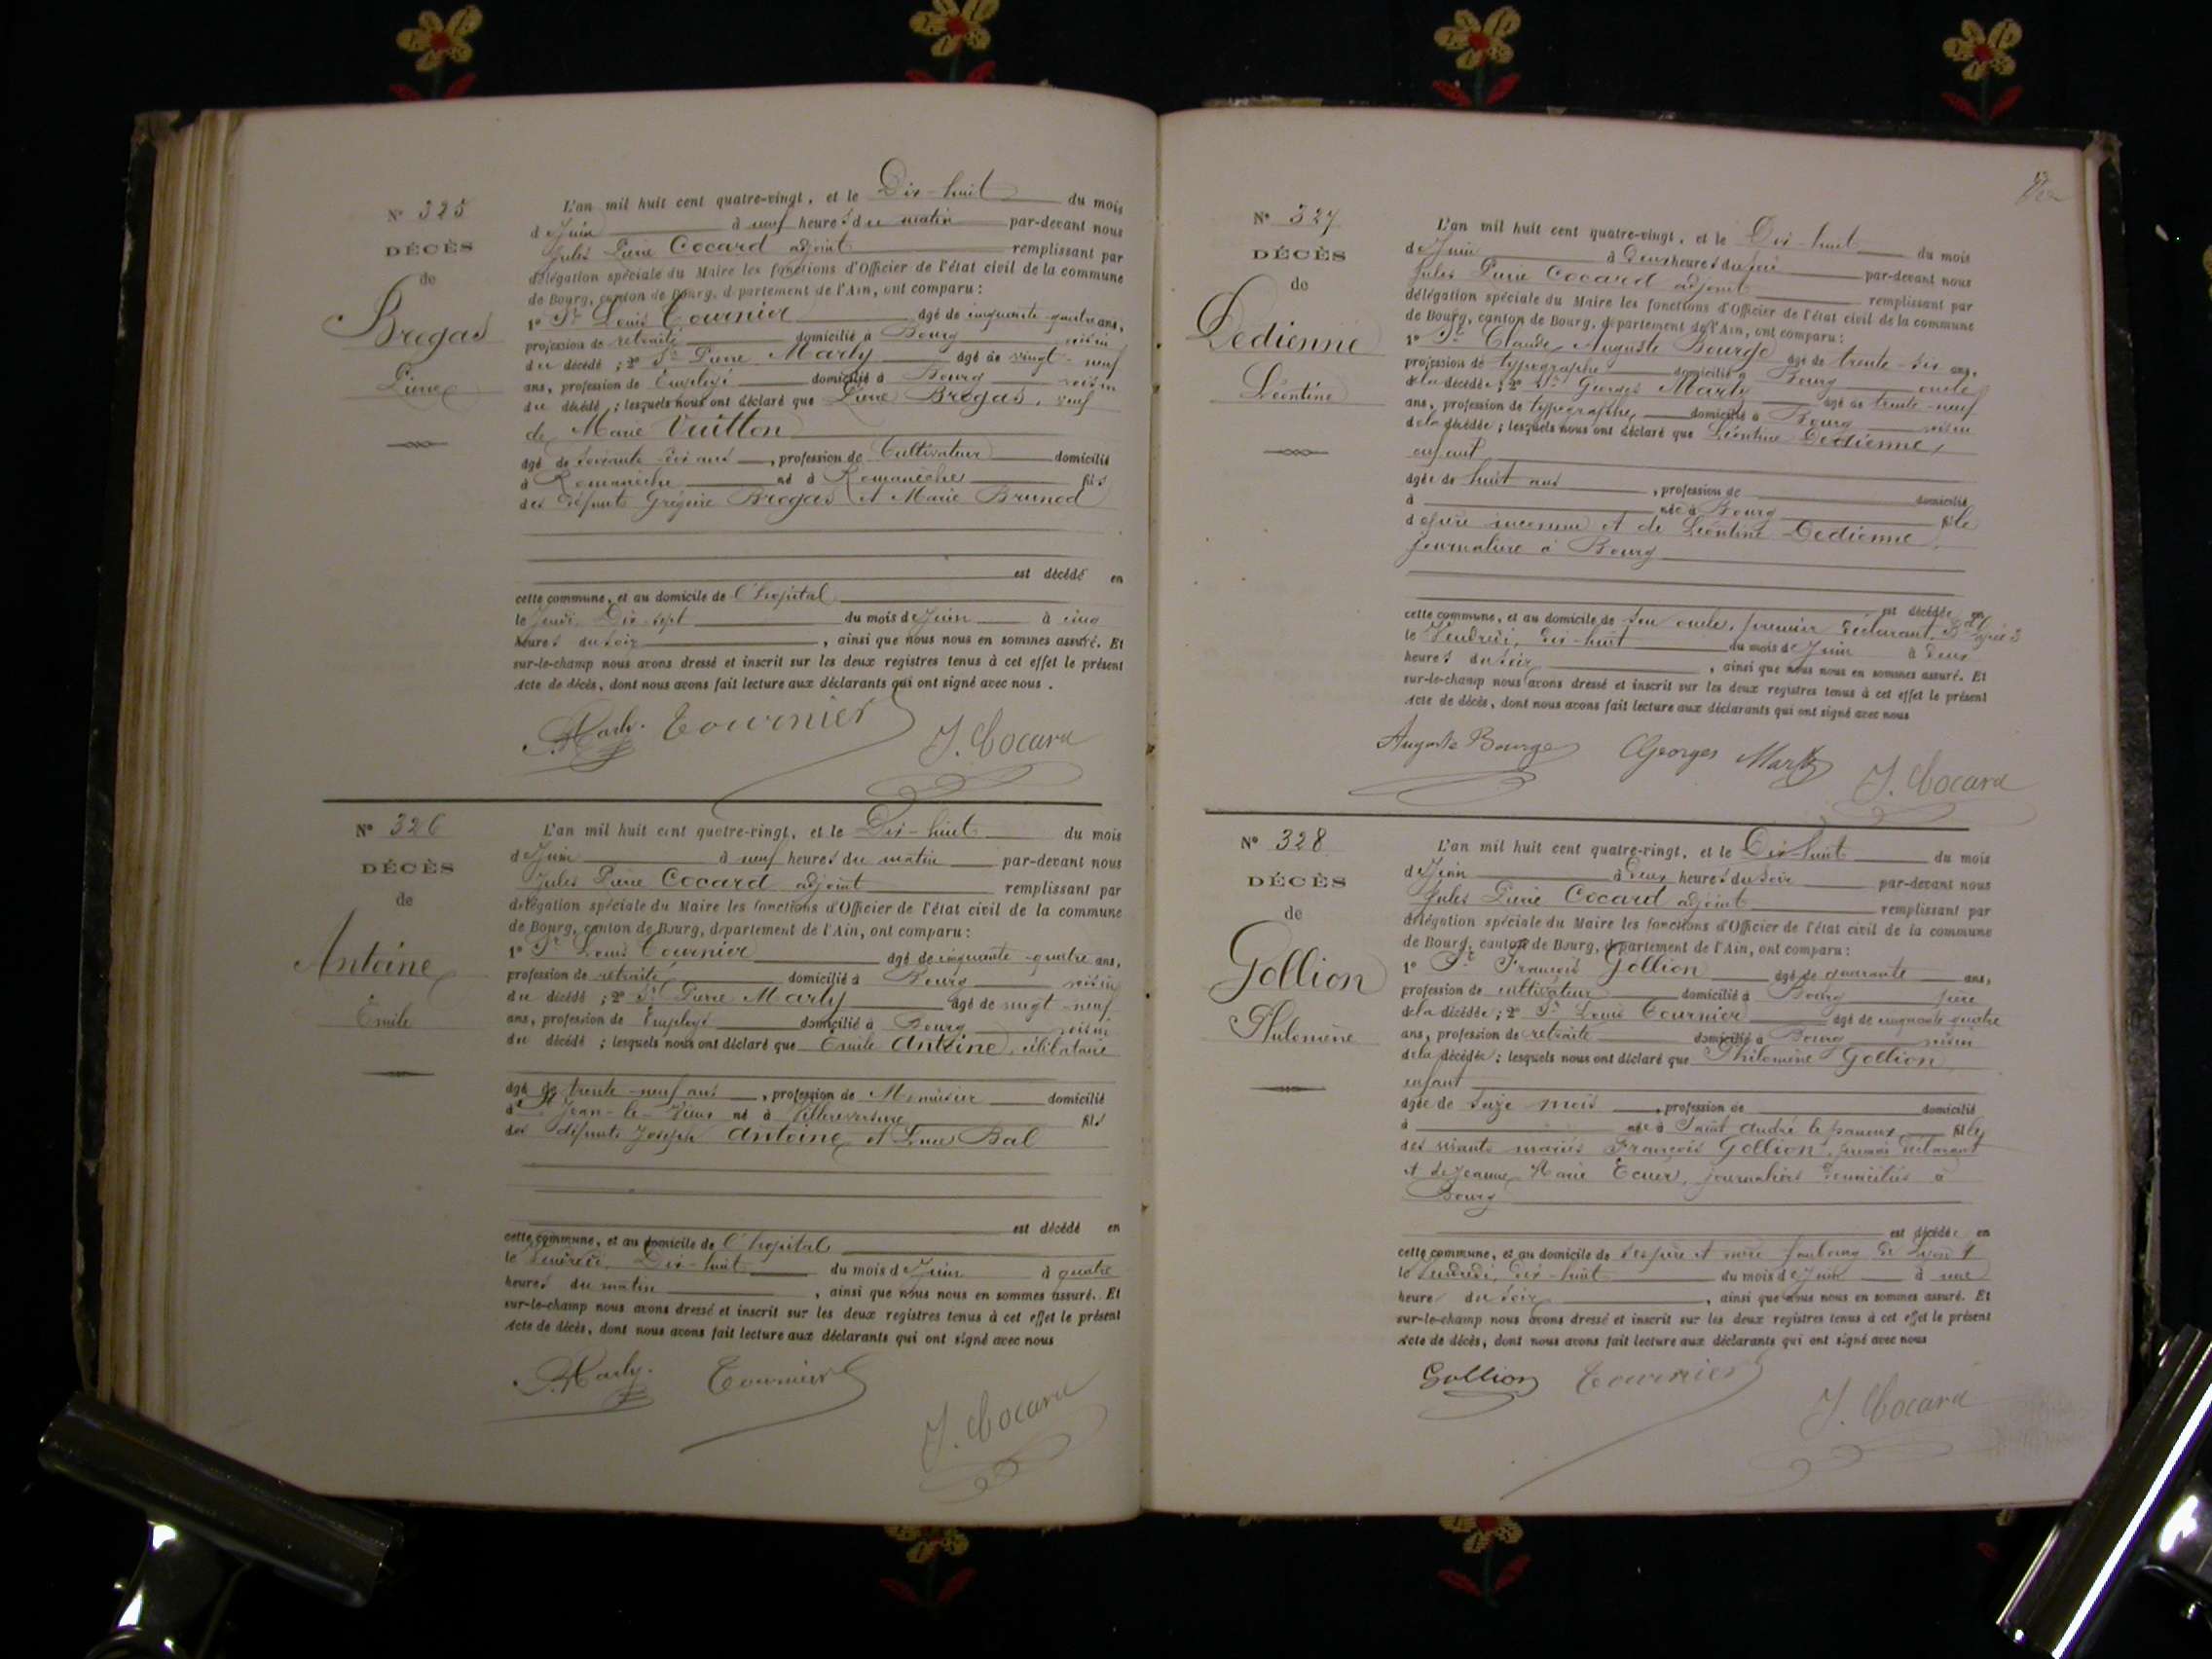 N° 325
DÉCÈS
de
Bregas
Pierre
L'an mil huit cent quatre-vingt, et le Dix-huit du mois
de Juin à neuf heures du matin par-devant nous
Jules Pierre Cocard adjoint remplissant par
délégation spéciale du Maire les fonctions d'Officier de l'état civil de la commune
de Bourg, canton de Bourg, département de l'Ain, ont comparu :
1° Sr Louis Tournier âgé de cinquante-quatre ans,
profession de retraité domicilié à Bourg voisin
du décédé ; 2° Sr Pierre Marly âgé de vingt-neuf
ans, profession de Employé domicilié à Bourg voisin
du décédé ; lesquels nous ont déclaré que Pierre Bregas, veuf
de Marie Vuitton
âgé de soixante-dix ans, profession de Cultivateur domicilié
à Romanèche né à Romanèche fils
des défunts Grégoire Bregas et Marie Brunod
est décédé en
cette commune, et au domicile de l'hopital
le jeudi, Dix-sept du mois de Juin à cinq
heures du soir, ainsi que nous nous en sommes assuré. Et
sur-le-champ nous avons dressé et inscrit sur les deux registres tenus à cet effet le présent
Acte de décès, dont nous avons fait lecture aux déclarants qui ont signé avec nous.
Marly. Tournier J. Cocard
N° 326
DÉCÈS
de
Antoine
Émile
L'an mil huit cent quatre-vingt, et le Dix-huit du mois
de Juin à neuf heures du matin par-devant nous
Jules Pierre Cocard adjoint remplissant par
délégation spéciale du Maire les fonctions d'Officier de l'état civil de la commune
de Bourg, canton de Bourg, département de l'Ain, ont comparu :
1° Sr Louis Tournier âgé de cinquante-quatre ans,
profession de retraité domicilié à Bourg voisin
du décédé ; 2° Sr Pierre Marly âgé de vingt-neuf
ans, profession de Employé domicilié à Bourg voisin
du décédé ; lesquels nous ont déclaré que Émile Antoine, célibataire
âgé de trente-neuf ans, profession de Menuisier domicilié
à St Jean-le-Vieux né à Villereversure fils
des défunts Joseph Antoine et Bal
est décédé en
cette commune, et au domicile de l'hopital
le Vendredi, Dix-huit du mois de Juin à quatre
heures du matin, ainsi que nous nous en sommes assuré. Et
sur-le-champ nous avons dressé et inscrit sur les deux registres tenus à cet effet le présent
Acte de décès, dont nous avons fait lecture aux déclarants qui ont signé avec nous
Marly. Tournier J. Cocard
N° 327
DÉCÈS
de
Dedienne
Léontine
L'an mil huit cent quatre-vingt, et le Dix-huit du mois
de Juin à Deux heures du soir par-devant nous
Jules Pierre Cocard adjoint remplissant par
délégation spéciale du Maire les fonctions d'Officier de l'état civil de la commune
de Bourg, canton de Bourg, département de l'Ain, ont comparu :
1° Sr Claude Auguste Bourge âgé de trente-six ans,
profession de typographe domicilié à Bourg oncle
de la décédée ; 2° Sr Georges Marty âgé de trente-neuf
ans, profession de typographe domicilié à Bourg voisin
de la décédée ; lesquels nous ont déclaré que Léontine Dedienne,
enfant
âgée de huit ans, profession de domicilié
à née à Bourg fille
de père inconnu et de Léontine Dedienne,
journalière à Bourg
est décédée en
cette commune, et au domicile de son oncle, premier déclarant,
le Vendredi, dix-huit du mois de Juin à deux
heures du soir, ainsi que nous nous en sommes assuré. Et
sur-le-champ nous avons dressé et inscrit sur les deux registres tenus à cet effet le présent
Acte de décès, dont nous avons fait lecture aux déclarants qui ont signé avec nous
Auguste Bourge Georges Marty J. Cocard
N° 328
DÉCÈS
de
Gollion
Philomène
L'an mil huit cent quatre-vingt, et le Dix-huit du mois
de Juin à Deux heures du soir par-devant nous
Jules Pierre Cocard adjoint remplissant par
délégation spéciale du Maire les fonctions d'Officier de l'état civil de la commune
de Bourg, canton de Bourg, département de l'Ain, ont comparu :
1° Sr François Gollion âgé de quarante ans,
profession de cultivateur domicilié à Bourg père
de la décédée ; 2° Sr Louis Tournier âgé de cinquante-quatre
ans, profession de retraité domicilié à Bourg voisin
de la décédée ; lesquels nous ont déclaré que Philomène Gollion,
enfant
âgée de seize mois, profession de domicilié
à née à Saint André le panoux fille
des vivants mariés François Gollion, premier déclarant
et de Jeanne Marie Ecuer, journaliers domiciliés à
Bourg
est décédée en
cette commune, et au domicile de ses père et mère faubourg de Lyon 1
le Vendredi, dix-huit du mois de Juin à une
heure du soir, ainsi que nous nous en sommes assuré. Et
sur-le-champ nous avons dressé et inscrit sur les deux registres tenus à cet effet le présent
Acte de décès, dont nous avons fait lecture aux déclarants qui ont signé avec nous
Gollion Tournier J. Cocard